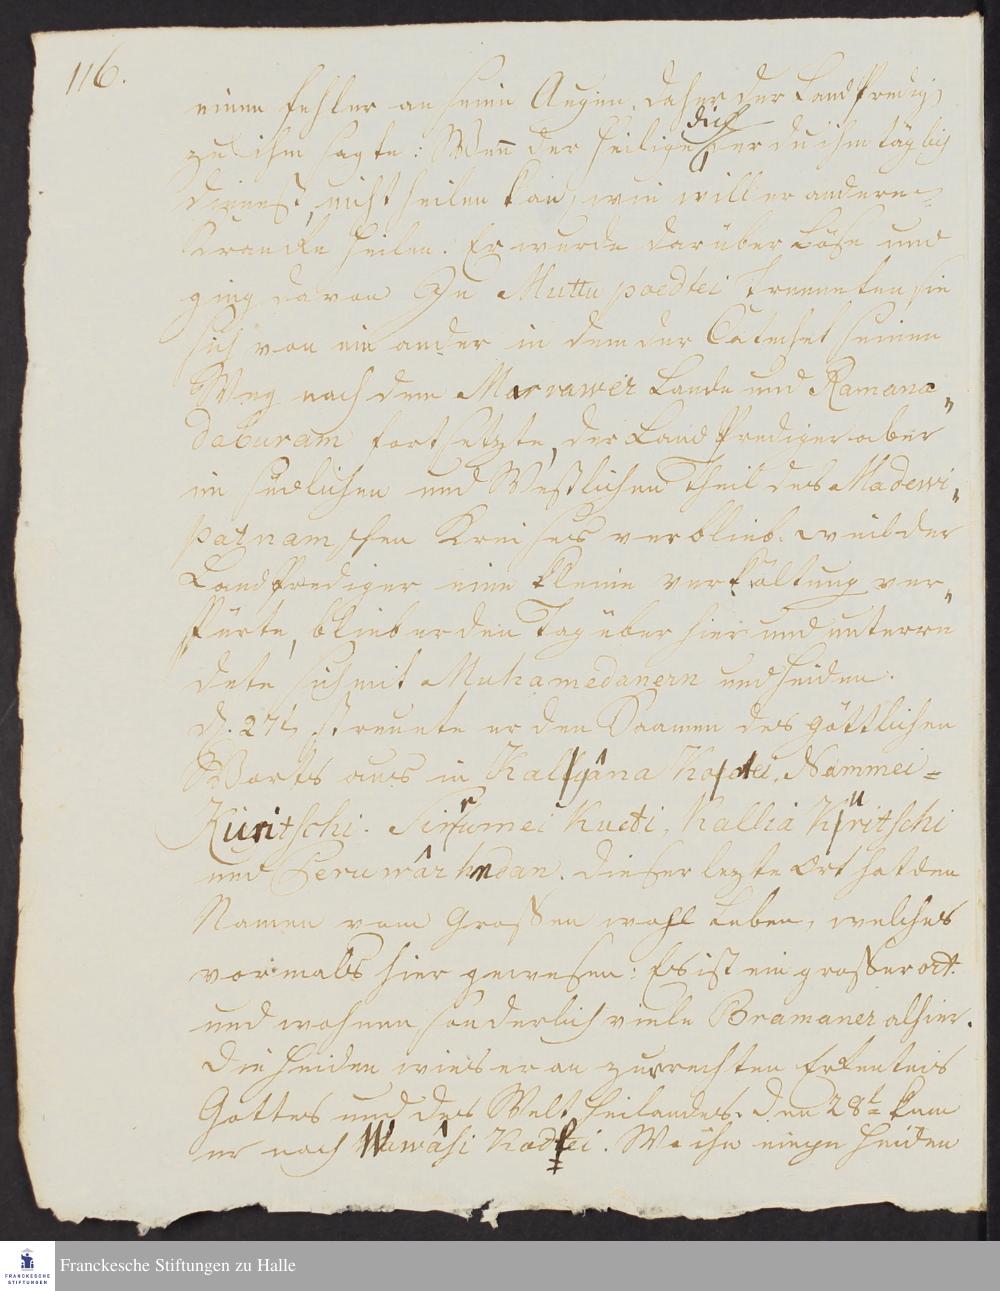 116.
einen Fehler an seinen Augen. daher der LandPredig
zu ihm sagte: Wenn der Heilige dich der du ihm täglich
dienest, nicht heilen kan, wie will er andere
Krancke heilen. Er wurde darüber böse und
ging davon In Muttupoedtei Trenneten sie
sich von ein ander in dem der Catechet seinen
Weg nach dem Marrawer Lande und Ramana„
daburam fortsetzte, der LandPrediger aber
im südlichen und Westlichen Theil des Madewi„
patnamschen Kreises verblieb. weil der
LandPrediger eine kleine verkältung ver„
spürte, blieb er den Tag über hier und unterre
dete sich mit Muhamedanern und Heiden.
d. 27t. streuete er den Saamen des göttlichen
Worts aus in Kaljâna Kotei, Nammei=
Kuritschi. Sirumei Kudi, Kallia Kuritschi
und Peruwârhudan. dieser lezte Ort hat den
Namen vom Großen wohl Leben, welches
vormals hier gewesen: Es ist ein grosser ort.
und wohnen sonderlich viele Bramaner alhier.
Die Heiden wies er an zur rechten Erkentnis
Gottes und des Welt Heilandes. den 28t. kam
er nach Wawâsi Kodtei. Wo ihn einige Heiden
Franckesche Stiftungen zu Halle
FRANCKESCHE
STIFTUNGEN